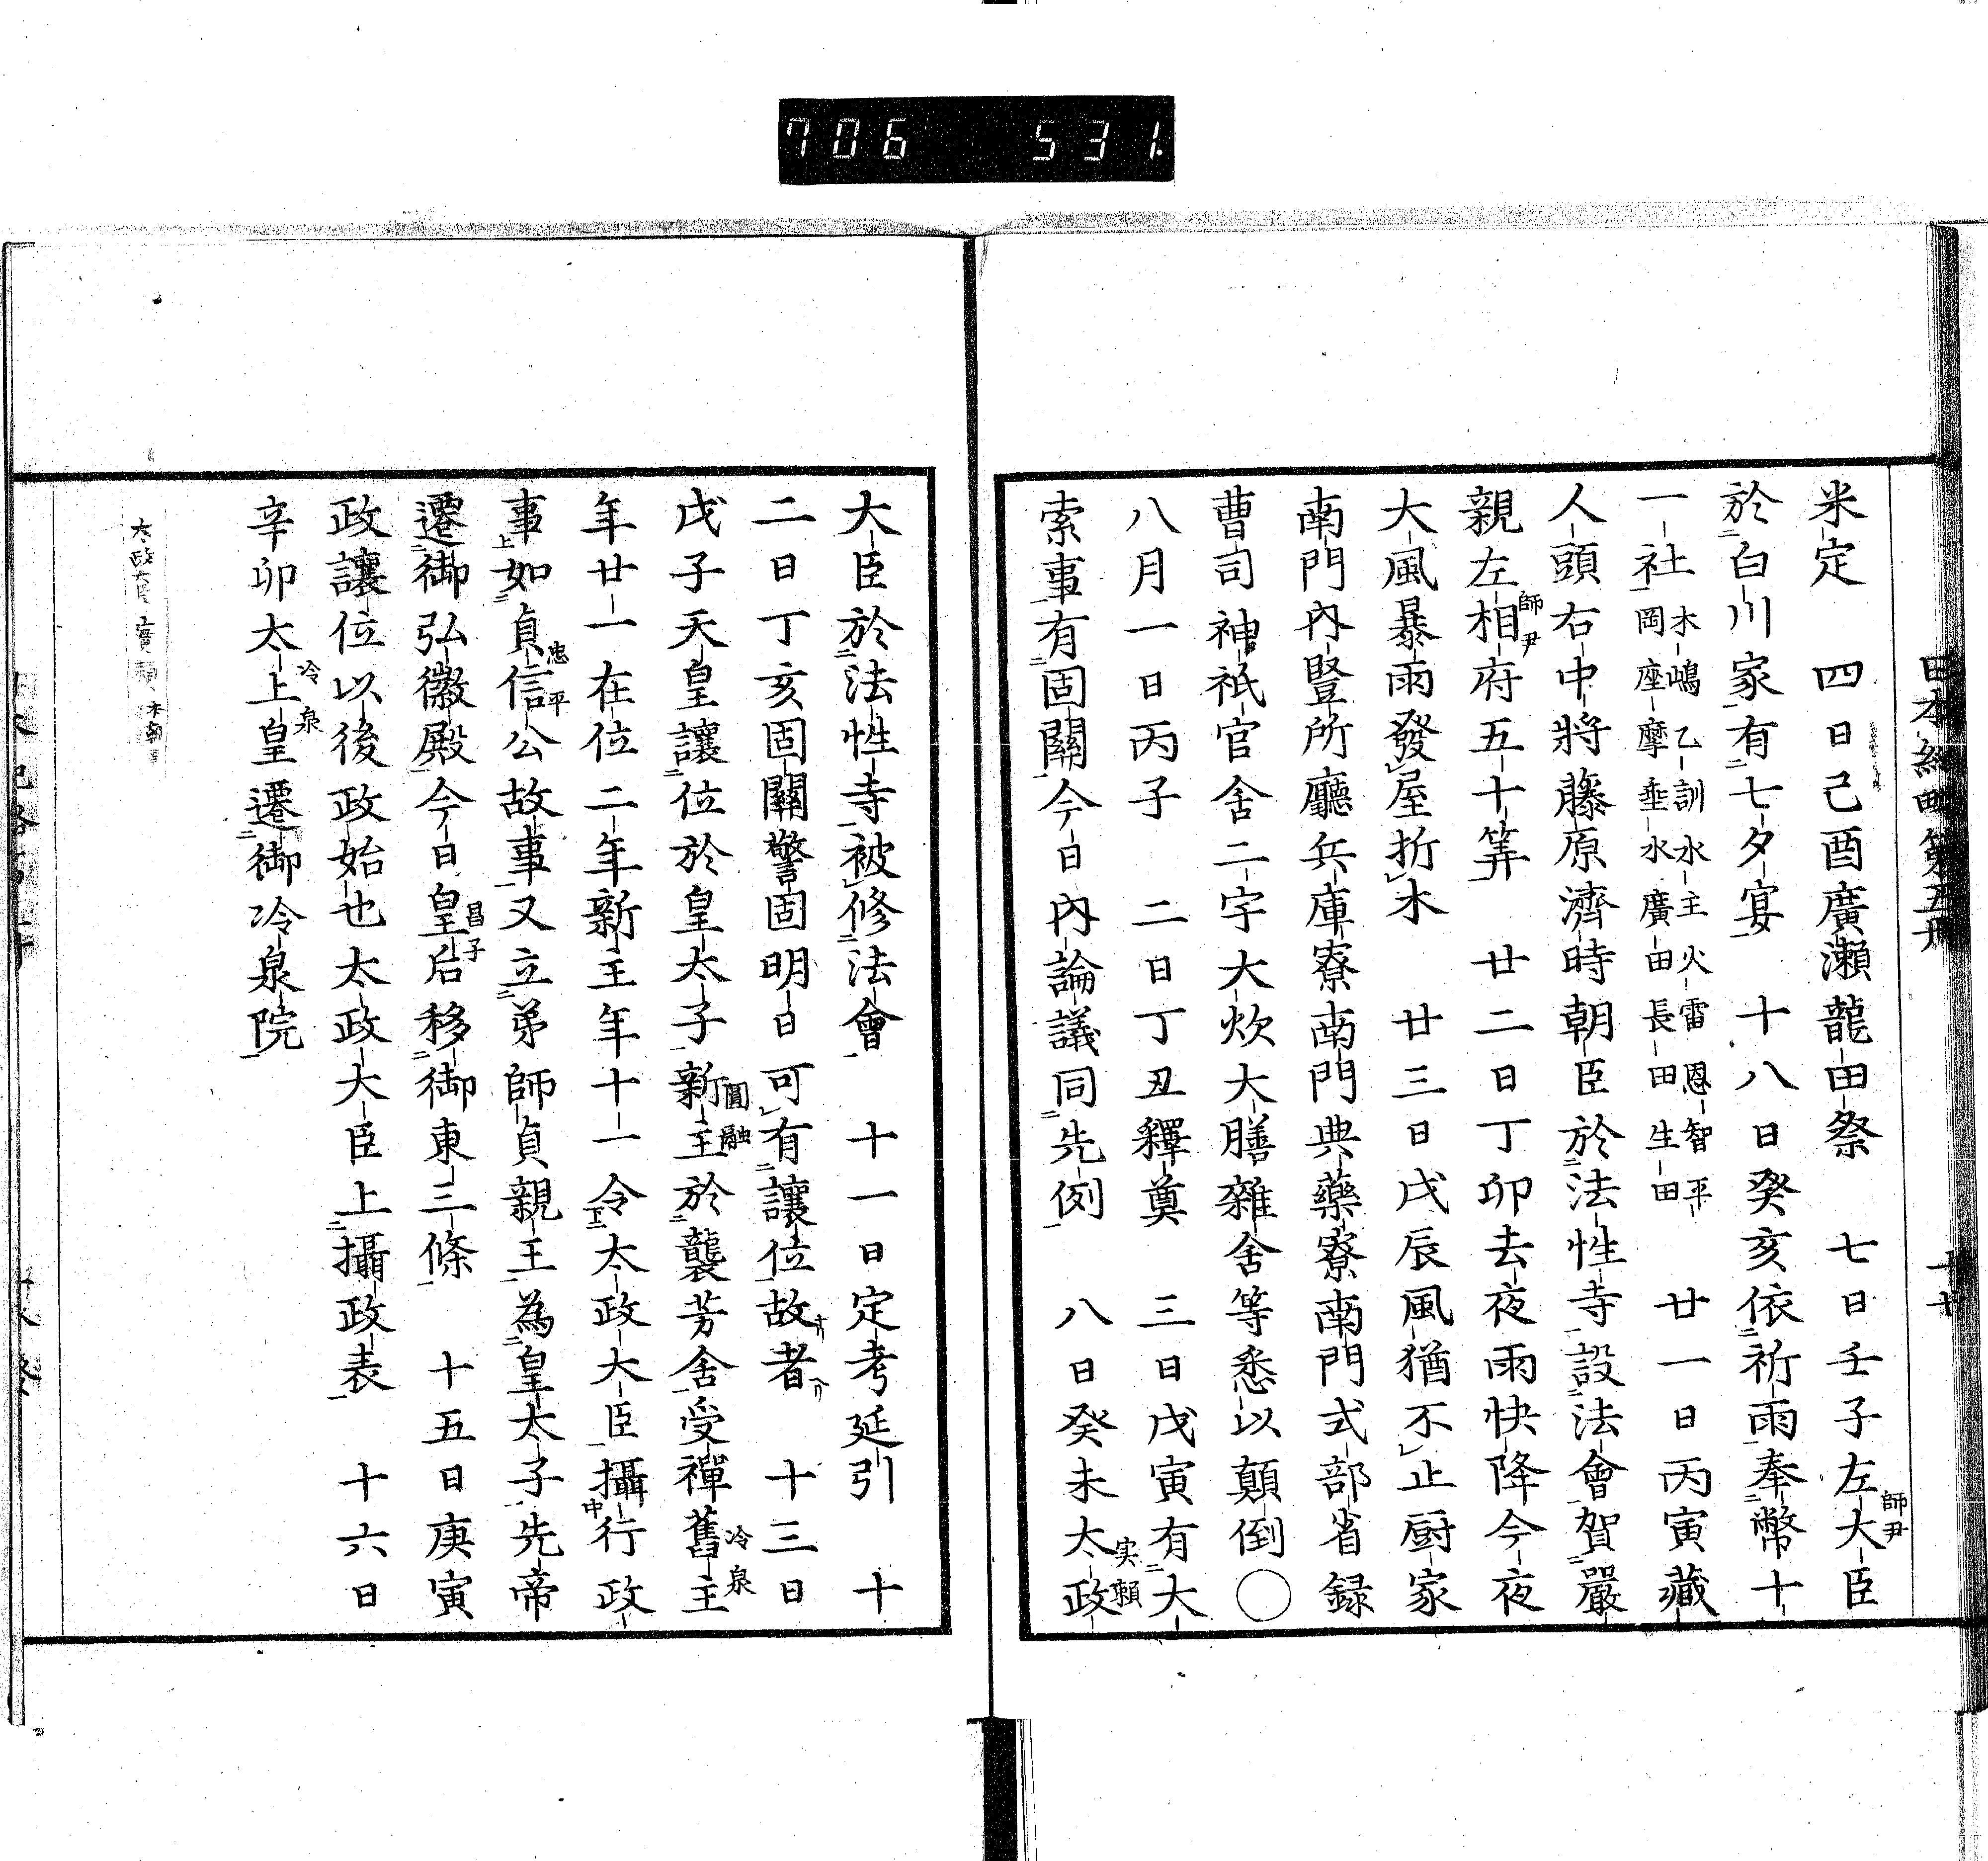 706 531.
米定　四日己酉廣瀨龍田祭　七日壬子左大臣師尹
於白川家有七夕宴　十八日癸亥依祈雨奉幣十
一社木嶋乙訓水主火雷恩智平岡座摩垂水廣田長田生田　廿一日丙寅藏
人頭右中將藤原濟時朝臣於法性寺設法會賀嚴
親左相師尹府五十筭　廿二日丁卯去夜雨快降今夜
大風暴雨發屋折木　廿三日戊辰風猶不止厨家
南門內豎所廳兵庫寮南門典藥寮南門式部省録
曹司神祇官舍二宇大炊大膳雜舍等悉以顛倒○
八月一日丙子　二日丁丑釋奠　三日戊寅有大
索事有固關今日內論議同先例　八日癸未太政実頼
大臣於法性寺被修法會　十一日定考延引　十
二日丁亥固關警固明日可有讓位故者　十三日
戊子天皇讓位於皇太子新主圓融於襲芳舍受禪舊主冷泉
年廿一在位二年新主年十一令太政大臣攝行政
事如貞信公忠平故事又立弟師貞親王為皇太子先帝
遷御弘徽殿今日皇后昌子移御東三條　十五日庚寅
政讓位以後政始也太政大臣上攝政表　十六日
辛卯太上皇冷泉遷御冷泉院